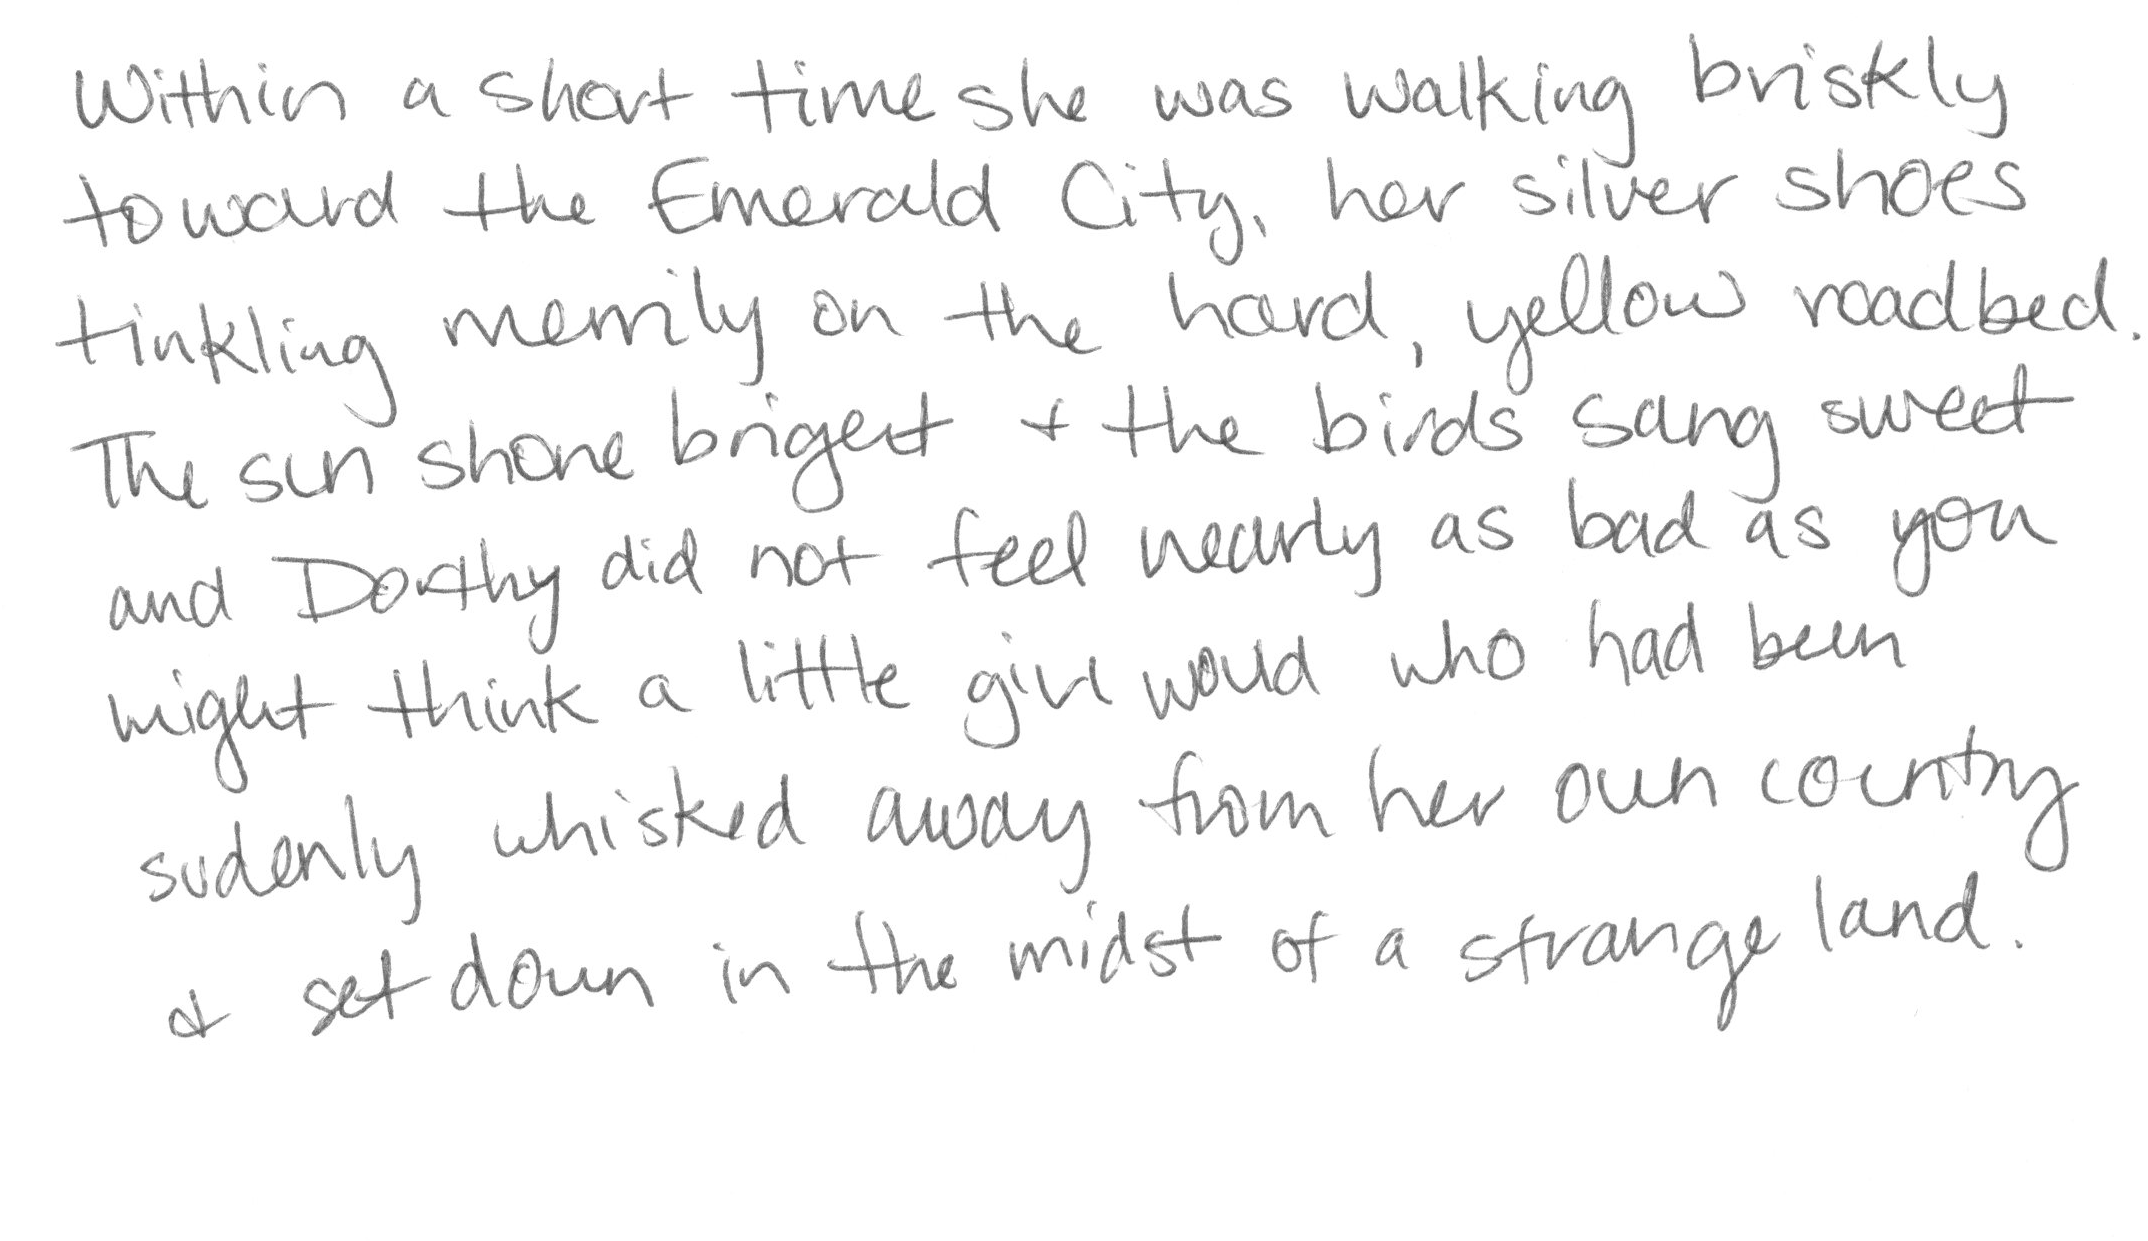 Within a short time she was walking briskly
toward the Emerald City, her silver shoes
tinkling merrily on the hard, yellow roadbed.
The sun shone brigert & the birds sang sweet
and Dorthy did not feel nearly as bad as you
might think a little girl would who had been
sudenly whisked away from her own country
& set down in the midst of a strange land.